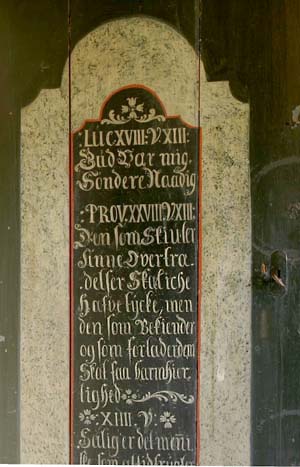 : LUC XVIII : V XIII :
Gud Vær mig
Syndere Naadig
: PROV. XXVIII V XIII :
Den som Skiuler
sinne Overtræ
delser Skal iche
Hafve lycke, men
den som Bekiender
og som forlader dem
Skal faa barmhier,
tighed
XIIII. V.
Salig er det menni
ske som altid frÿcter